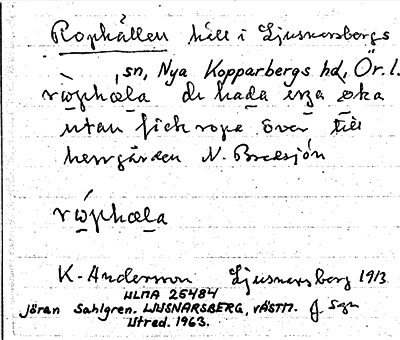 Rophällen häll i Ljusnarsbergs
sn, Nya Kopparbergs hd, Ör. l.
de hada
utan fick ropa över till
herrgården N. Bredsjön
K-Andersson Ljusnarsberg 1913
ULMA 26484
Jöran Sahlgren. LJUSNARSBERG, VÄSTM.
Utred. 1963.